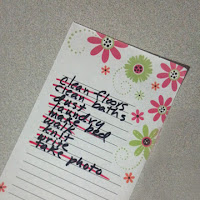 clean floors
clean baths
dust
laundry
make bed
walk
knit
write
take photo